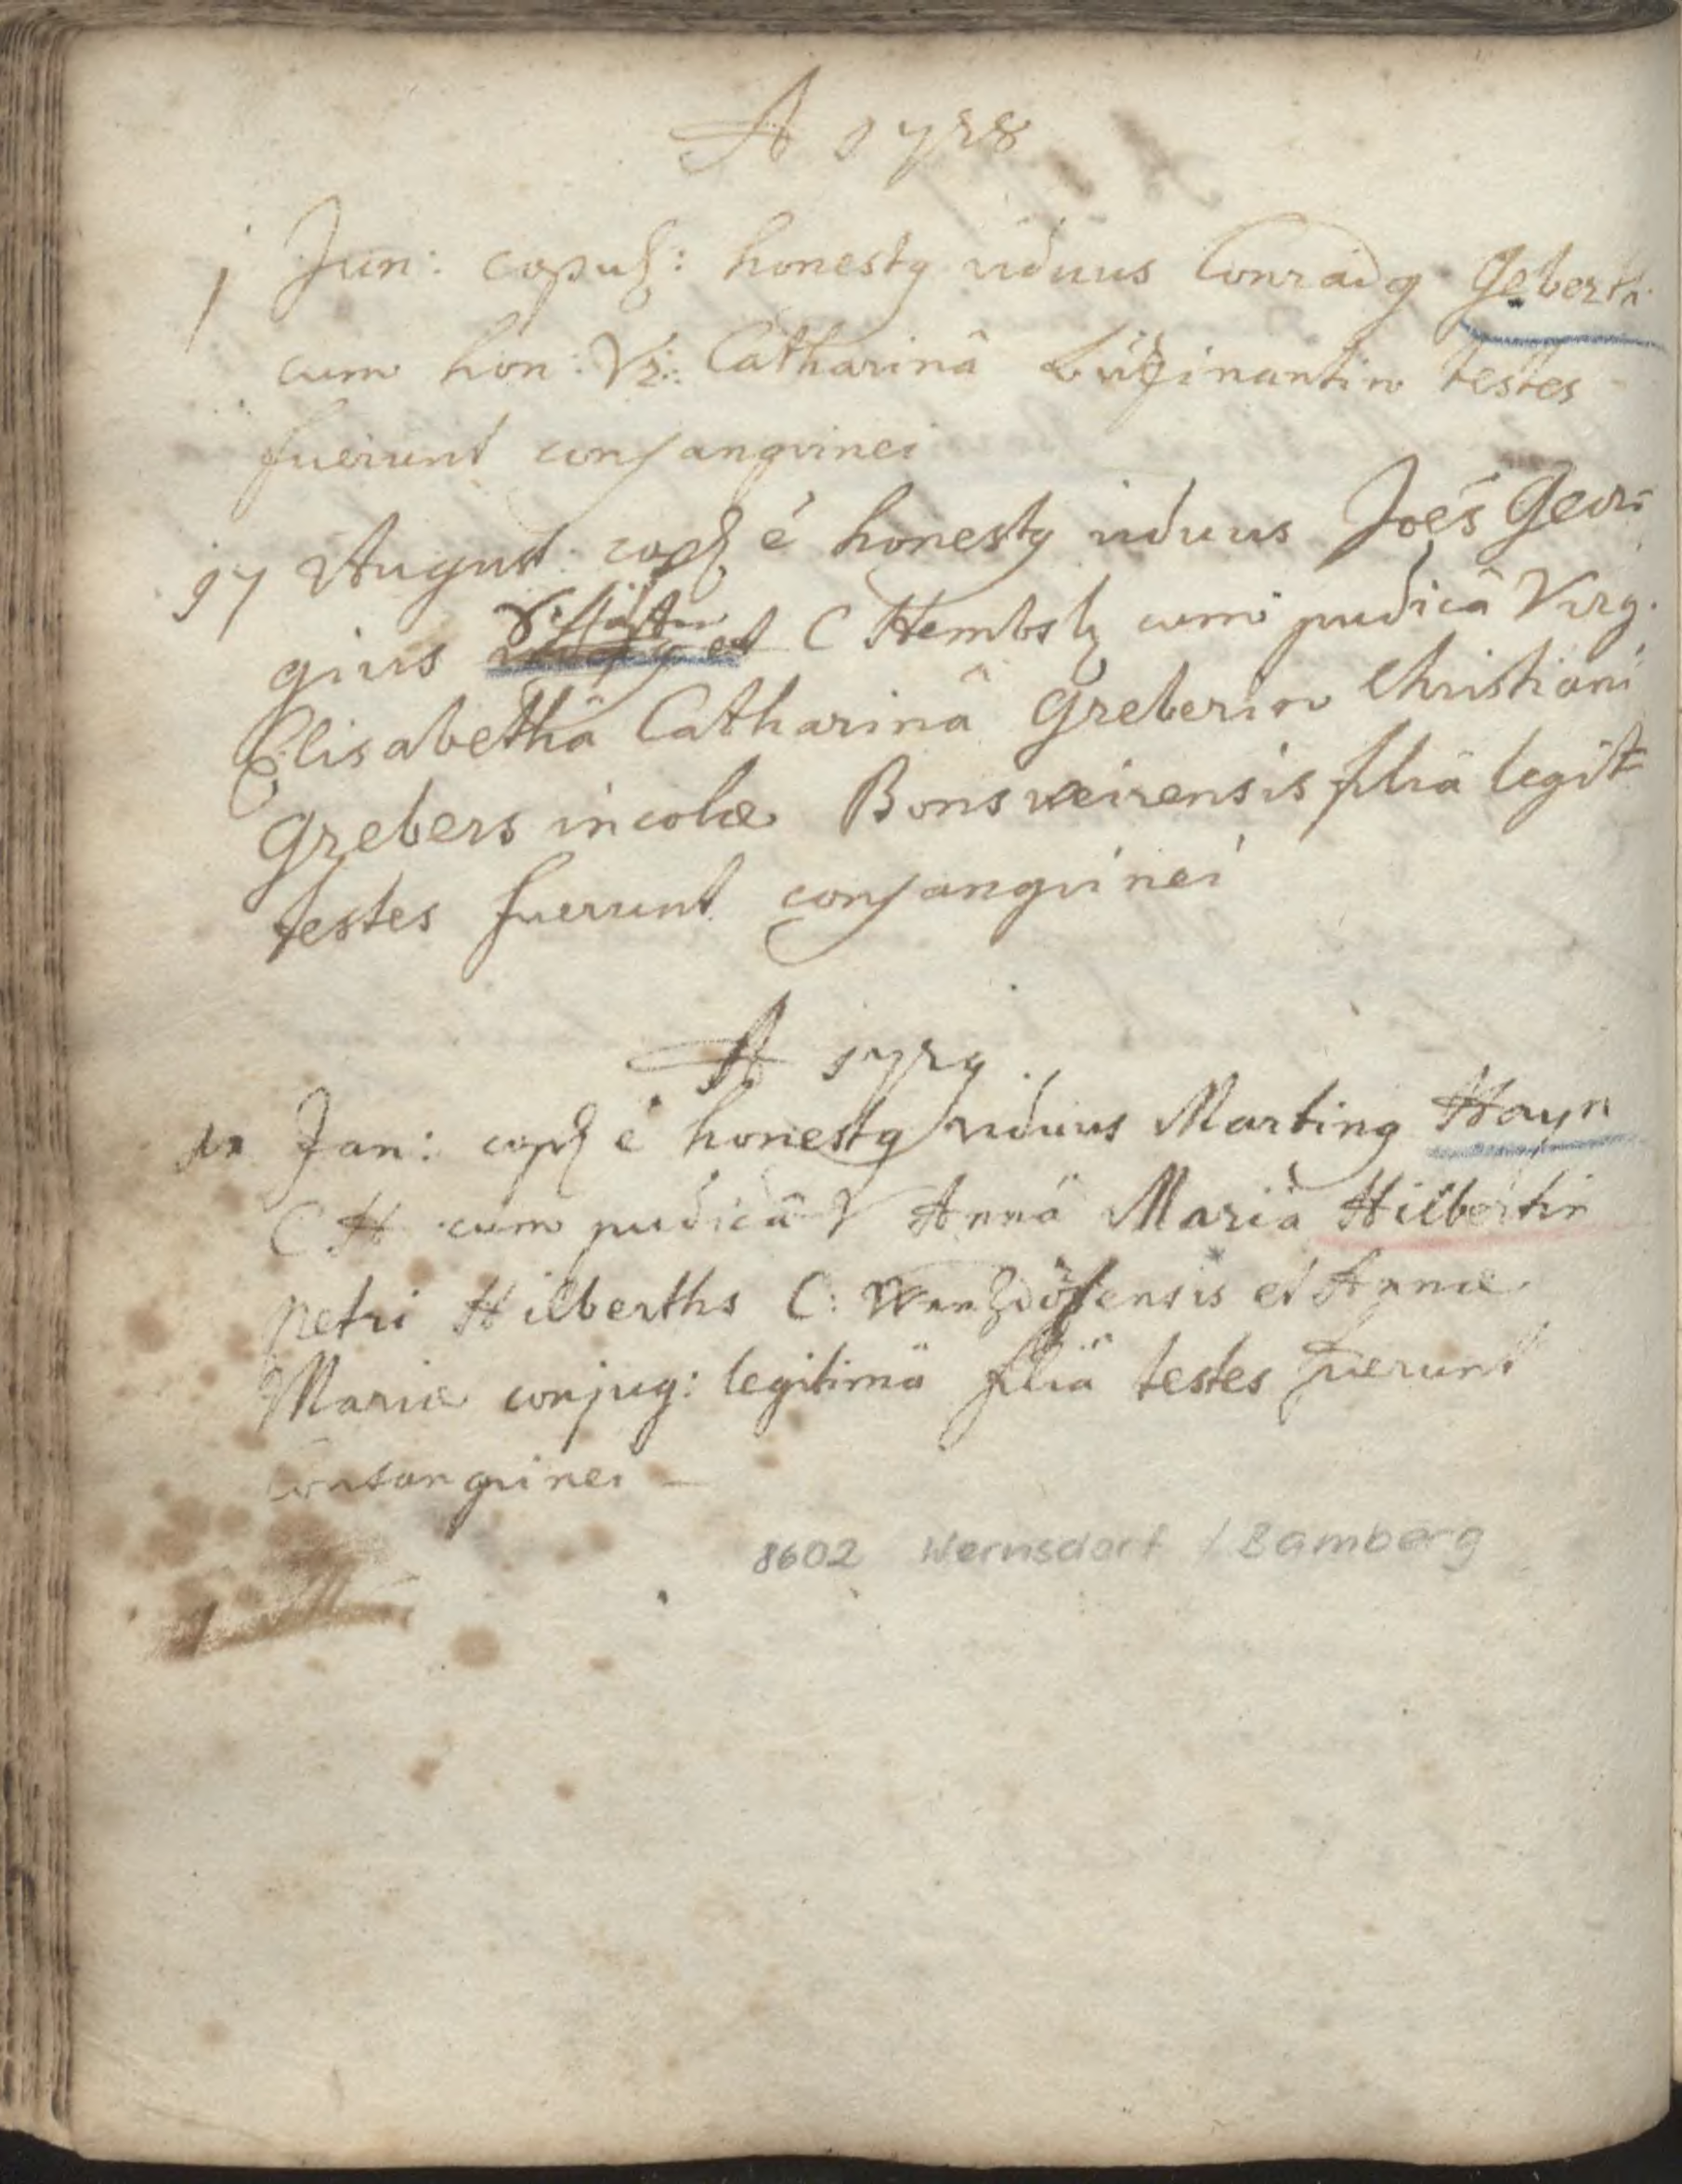 A 1728
1 Jun: copul: honestg viduus Conradg Geberth
cum hon: Vi: Catharinâ testes
fuerunt consangvinei
17 August copl ê honestg viduus Joes Geor-
gius C Hembsb cum pudicâ Virg.
Elisabethâ Catharinâ Greberin Christiani
Grebers incolæ Bonsweirensis filiâ legit
testes fuerunt consangvinei
A 1729
Jan: copl ê honestg viduus Marting Hayn
C H cum pudicâ V Annâ Mariâ Hilberthin
Petri Hilberths C: et Annæ
Mariæ conjug: legitimâ filiâ testes fuerunt
consangvinei
8602 Wernsdorf / Bamberg